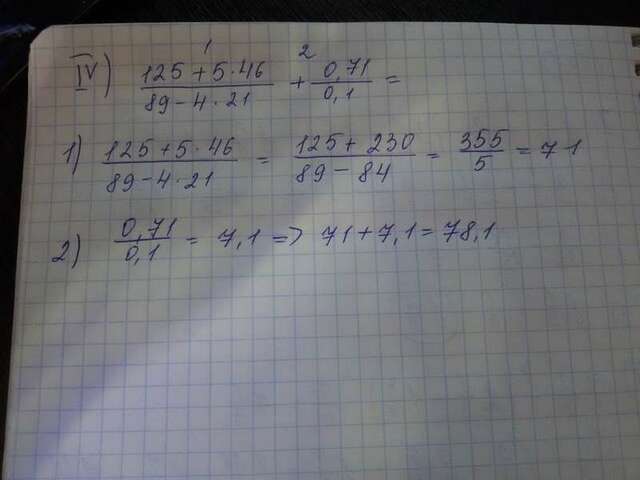 IV) 125 + 5 · 46 / 89 - 4 · 21 + 0,71 / 0,1 =
1 2
1) 125 + 5 · 46 / 89 - 4 · 21 = 125 + 230 / 89 - 84 = 355 / 5 = 71
2) 0,71 / 0,1 = 7,1 => 71 + 7,1 = 78,1